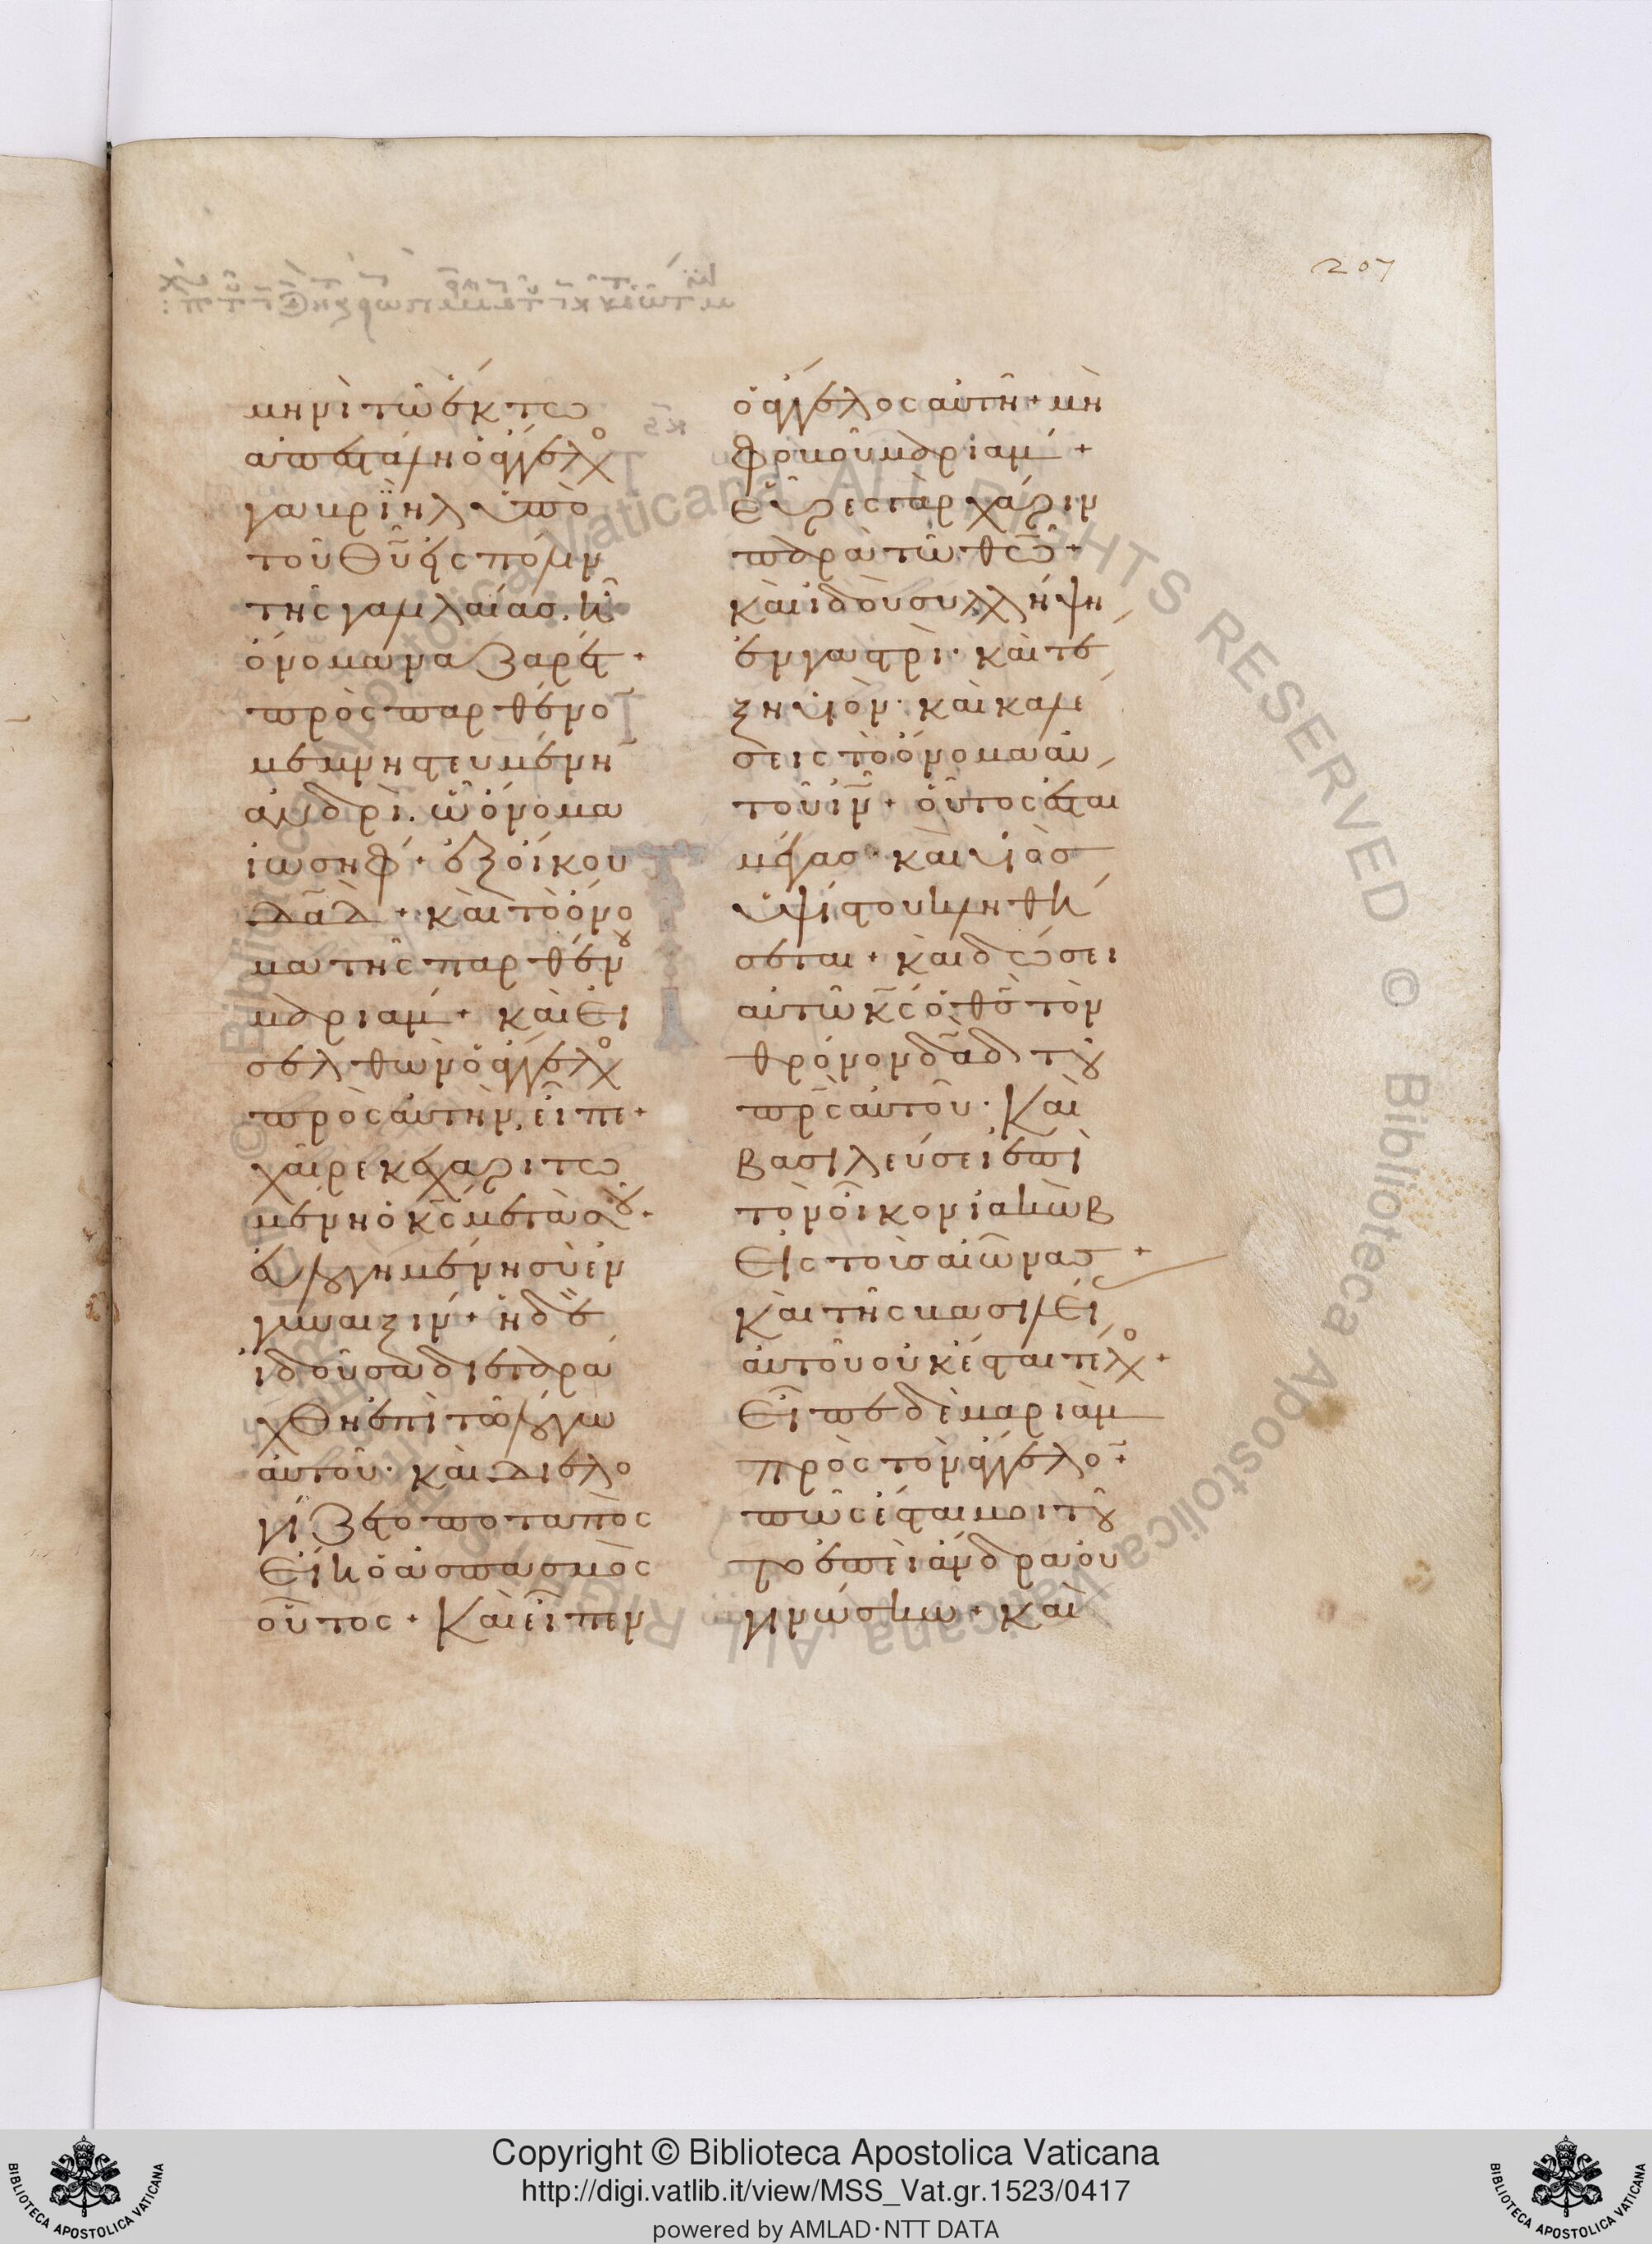 207
μηνὶ τῶ ἕκτω
ἀπεστάλη ὁ ἄγγελος
γαβριὴλ ὑπὸ
τοῦ θῡ εἰς πόλιν
τῆς γαλιλαίας. ἧ
ὄνομα ναζαρέτ +
πρὸς παρθένο̄
μεμνηστευμένη̄
ἀνδρὶ. ὧ ὄνομα
ἰωσὴφ + ἐξ οἴκου
δᾱδ + καὶ τὸ ὄνο
μα τῆς παρθένου
μαριάμ + καὶ εἰ
σελθὼν ὁ ἄγγελος
πρὸς αὐτὴν, εἶπε +
χαῖρε κεχαριτω
μένη ὁ κ̄ς μετὰ σοῦ +
εὐλογημένη σὺ ἐν
γυναιξίν + ἡ δὲ
ἰδοῦσα διεταρά
χθη ἐπὶ τῶ λόγω
αὐτοῦ · καὶ διελο
γίζετο ποταπὸς
εἴη ὁ ἀσπασμὸς
οὗτος + Καὶ εἶπεν
ὁ ἄγγελος αὐτῆ + μὴ
φοβοῦ μαριάμ +
εὗρες γὰρ χάριν
παρὰ τῶ θ̄ω +
καὶ ἰδοὺ συλλήψη
ἐν γαστρὶ · καὶ τέ
ξη υἱὸν · καὶ καλέ
σεις τὸ ὄνομα αὐ
τοῦ ῑν + οὗτος ἔσται
μέγας · καὶ υἱὸς
ὑψίστου κληθή
σεται + καὶ δώσει
αὐτῶ κ̄ς ὁ θ̄ς τὸν
θρόνον δᾱδ τοῦ
πρ̄ς αὐτοῦ · Καὶ
βασιλεύσει ἐπὶ
τὸν οἶκον ἰακὼβ
εἰς τοὺς αἰῶνας +
Καὶ τῆς βασιλεί
ας αὐτοῦ οὐκ ἔσται τέλος +
Εἶπε δὲ μαριὰμ
πρὸς τὸν ἄγγελο̄ +
πῶς ἔσται μοι τοῦ
το ἐπεὶ ἄνδρα οὐ
γινώσκω + καὶ
© Biblioteca Apostolica Vaticana ALL RIGHTS RESERVED © Biblioteca Apostolica Vaticana ALL RIGHTS RESERVED
Copyright © Biblioteca Apostolica Vaticana
http://digi.vatlib.it/view/MSS_Vat.gr.1523/0417
powered by AMLAD·NTT DATA
BIBLIOTECA APOSTOLICA VATICANA
BIBLIOTECA APOSTOLICA VATICANA